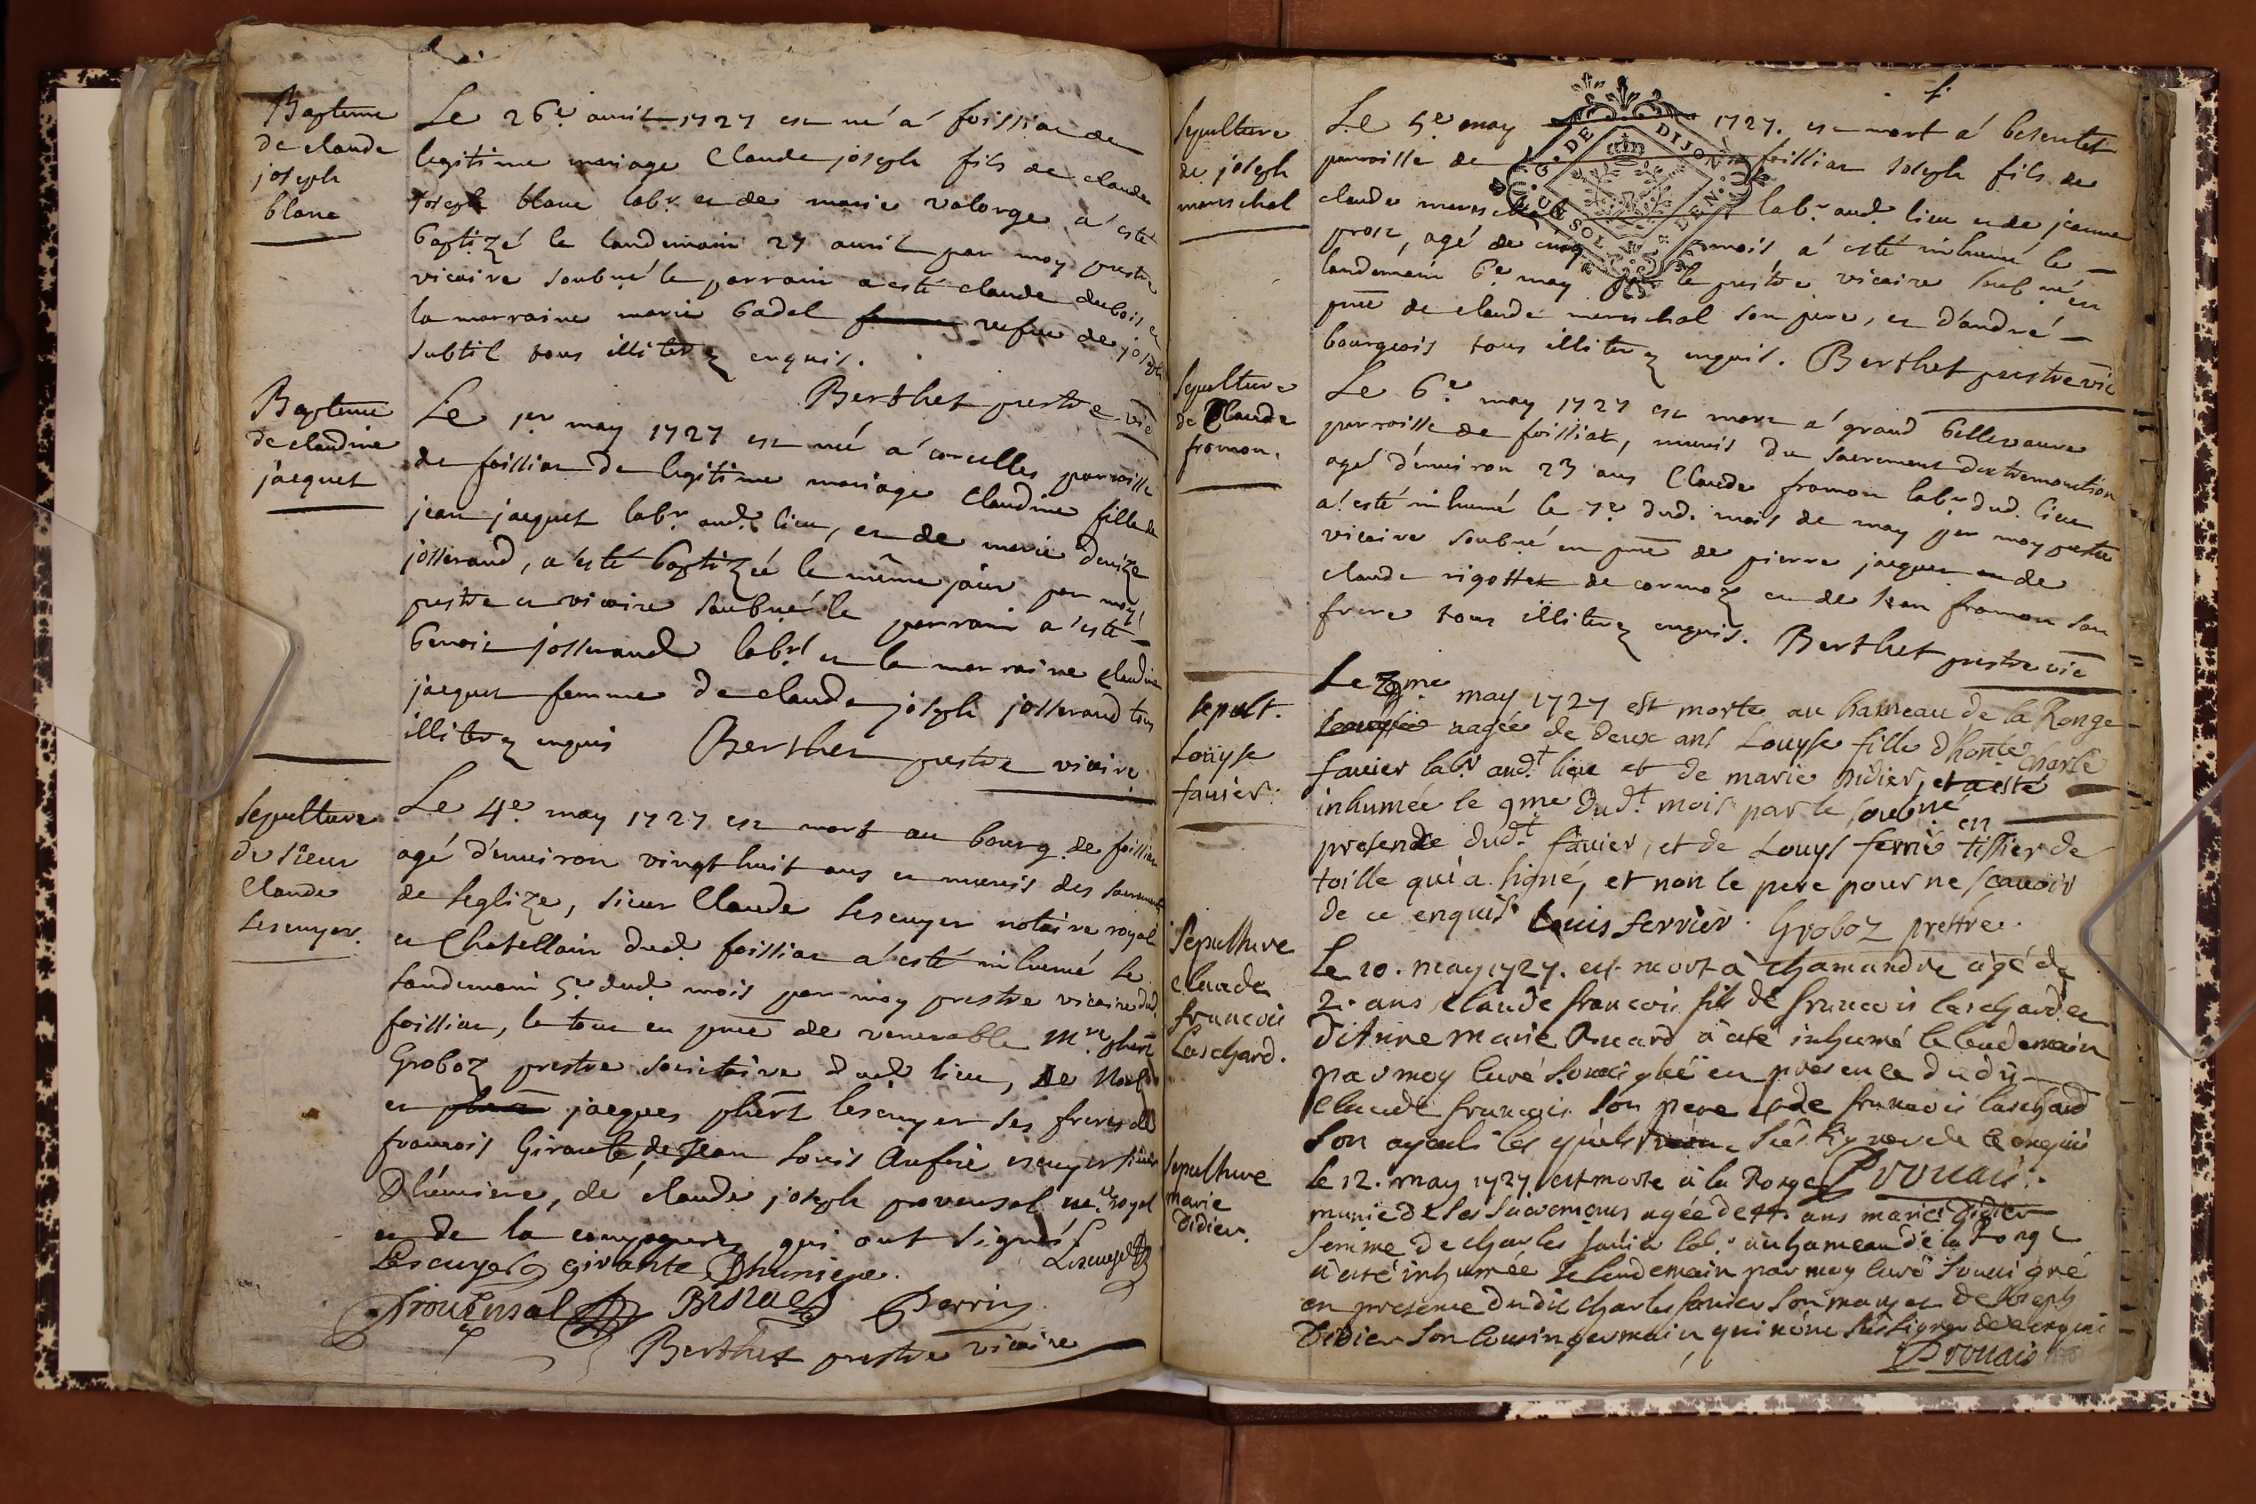 Bapteme
de claude
joseph
blanc
Le 26e avril 1727 est né a foissiac de
legitime mariage Claude joseph fils de claude
joseph blanc labr. et de marie valorge a esté
baptizé le landemain 27 avril par moy prestre
vicaire soubné le parrain a esté claude dubois et
la marraine marie badel vefve de joseph
subtil tous illiterez enquis.
Berthet prestre vic
Bapteme
de claudine
jacquet
Le 1er may 1727 est née a corcelles parroisse
de foissiac de legitime mariage Claudine fille de
jean jacquet labr. aud. lieu, et de marie denize
josserand, a esté baptizée le même jour par moy
prestre et vicaire soubné le parrain a esté
benoit josserand labr. et la marraine claudine
jacquet femme de claude joseph josserand tous
illiterez enquis Berthet prestre vicaire
Sepulture
du sieur
Claude
Lescuyer.
Le 4e may 1727 est mort au bourg de foissiac
agé d'environ vingt huit ans et munis des sacrements
de leglize, sieur Claude Lescuyer notaire royal
et Chatellain dud. foissiac a esté inhumé le
landemain 5e dud. mois par moy prestre vicaire dud.
foissiac, le tout en pnce de venerable mre phert
Groboz prestre societaire dud lieu, de
et jacques phert lescuyer ses freres de
francois Giraute, de Jean Louis Aufrié escuyer sieur
Dhuniere, de claude joseph provensal royal
et de la compagnie qui ont signés
Lescuyer giraute Dhuniere. Lescuyer
Prouensal Perrin
Berthet prestre vicaire
Sepulture
de joseph
mareschal
Le 5e may 1727. est mort a besentet
parroisse de foissiac joseph fils de
claude mareschal labr. aud. lieu et de jeanne
prost, agé de cinq mois, a esté inhumé le
landemain 6e may par le prestre vicaire soubné en
pnce de claude mareschal son pere, et d'andré
bourgeois tous illiterez enquis. Berthet prestre vic
Sepulture
de Claude
fromon.
Le 6e may 1727 est mort a grand bellevavre
parroisse de foissiat, munis du sacrement dextremonction
agé d'environ 23 ans Claude fromon labr. dud. lieu
a esté inhumé le 7e dud. mois de may par moy prestre
vicaire soubné en pnce de pierre jacquet de
claude rigottet de cormoz et de Jean fromon son
frere tous illiterez enquis. Berthet prestre vic
sepult.
Louyse
fauier.
Le may 1727 est morte au hameau de la Ronge
aagée de deux ans Louyse fille d'honte Charle
fauier labr. audt. lieu et de marie didier, et a esté
inhumée le 9me dudt. mois par le soubné en
presende dudt. fauier, et de Louys ferrié tissier de
toille qui a signé, et non le pere pour ne scauoir
de ce enquis Louis ferrier. Groboz prestre.
Sepulture
claude
francois
Laschard.
Le 10. may 1727. est mort à chamandre agé de
2. ans claude francois fils de francois laschard et
d'Anne marie a été inhumé le lendemain
par moy curé soussigné en presence dudit
claude francois son pere et de francois laschard
son ayeul les quels
sepulture
marie
didier.
le 12. may 1727 est morte à la Ronge Drouais.
munie de ses sacremens agée de 44 ans marie didier
femme de charles fauier labr. au hameau de la Ronge
a été inhumée le lendemain par moy curé soussigné
en presence dudit charles fauier son mary et de Joseph
Didier son cousin germain qui n'ont sceu signer de ce enquis
Drouais
G. DE DIJON